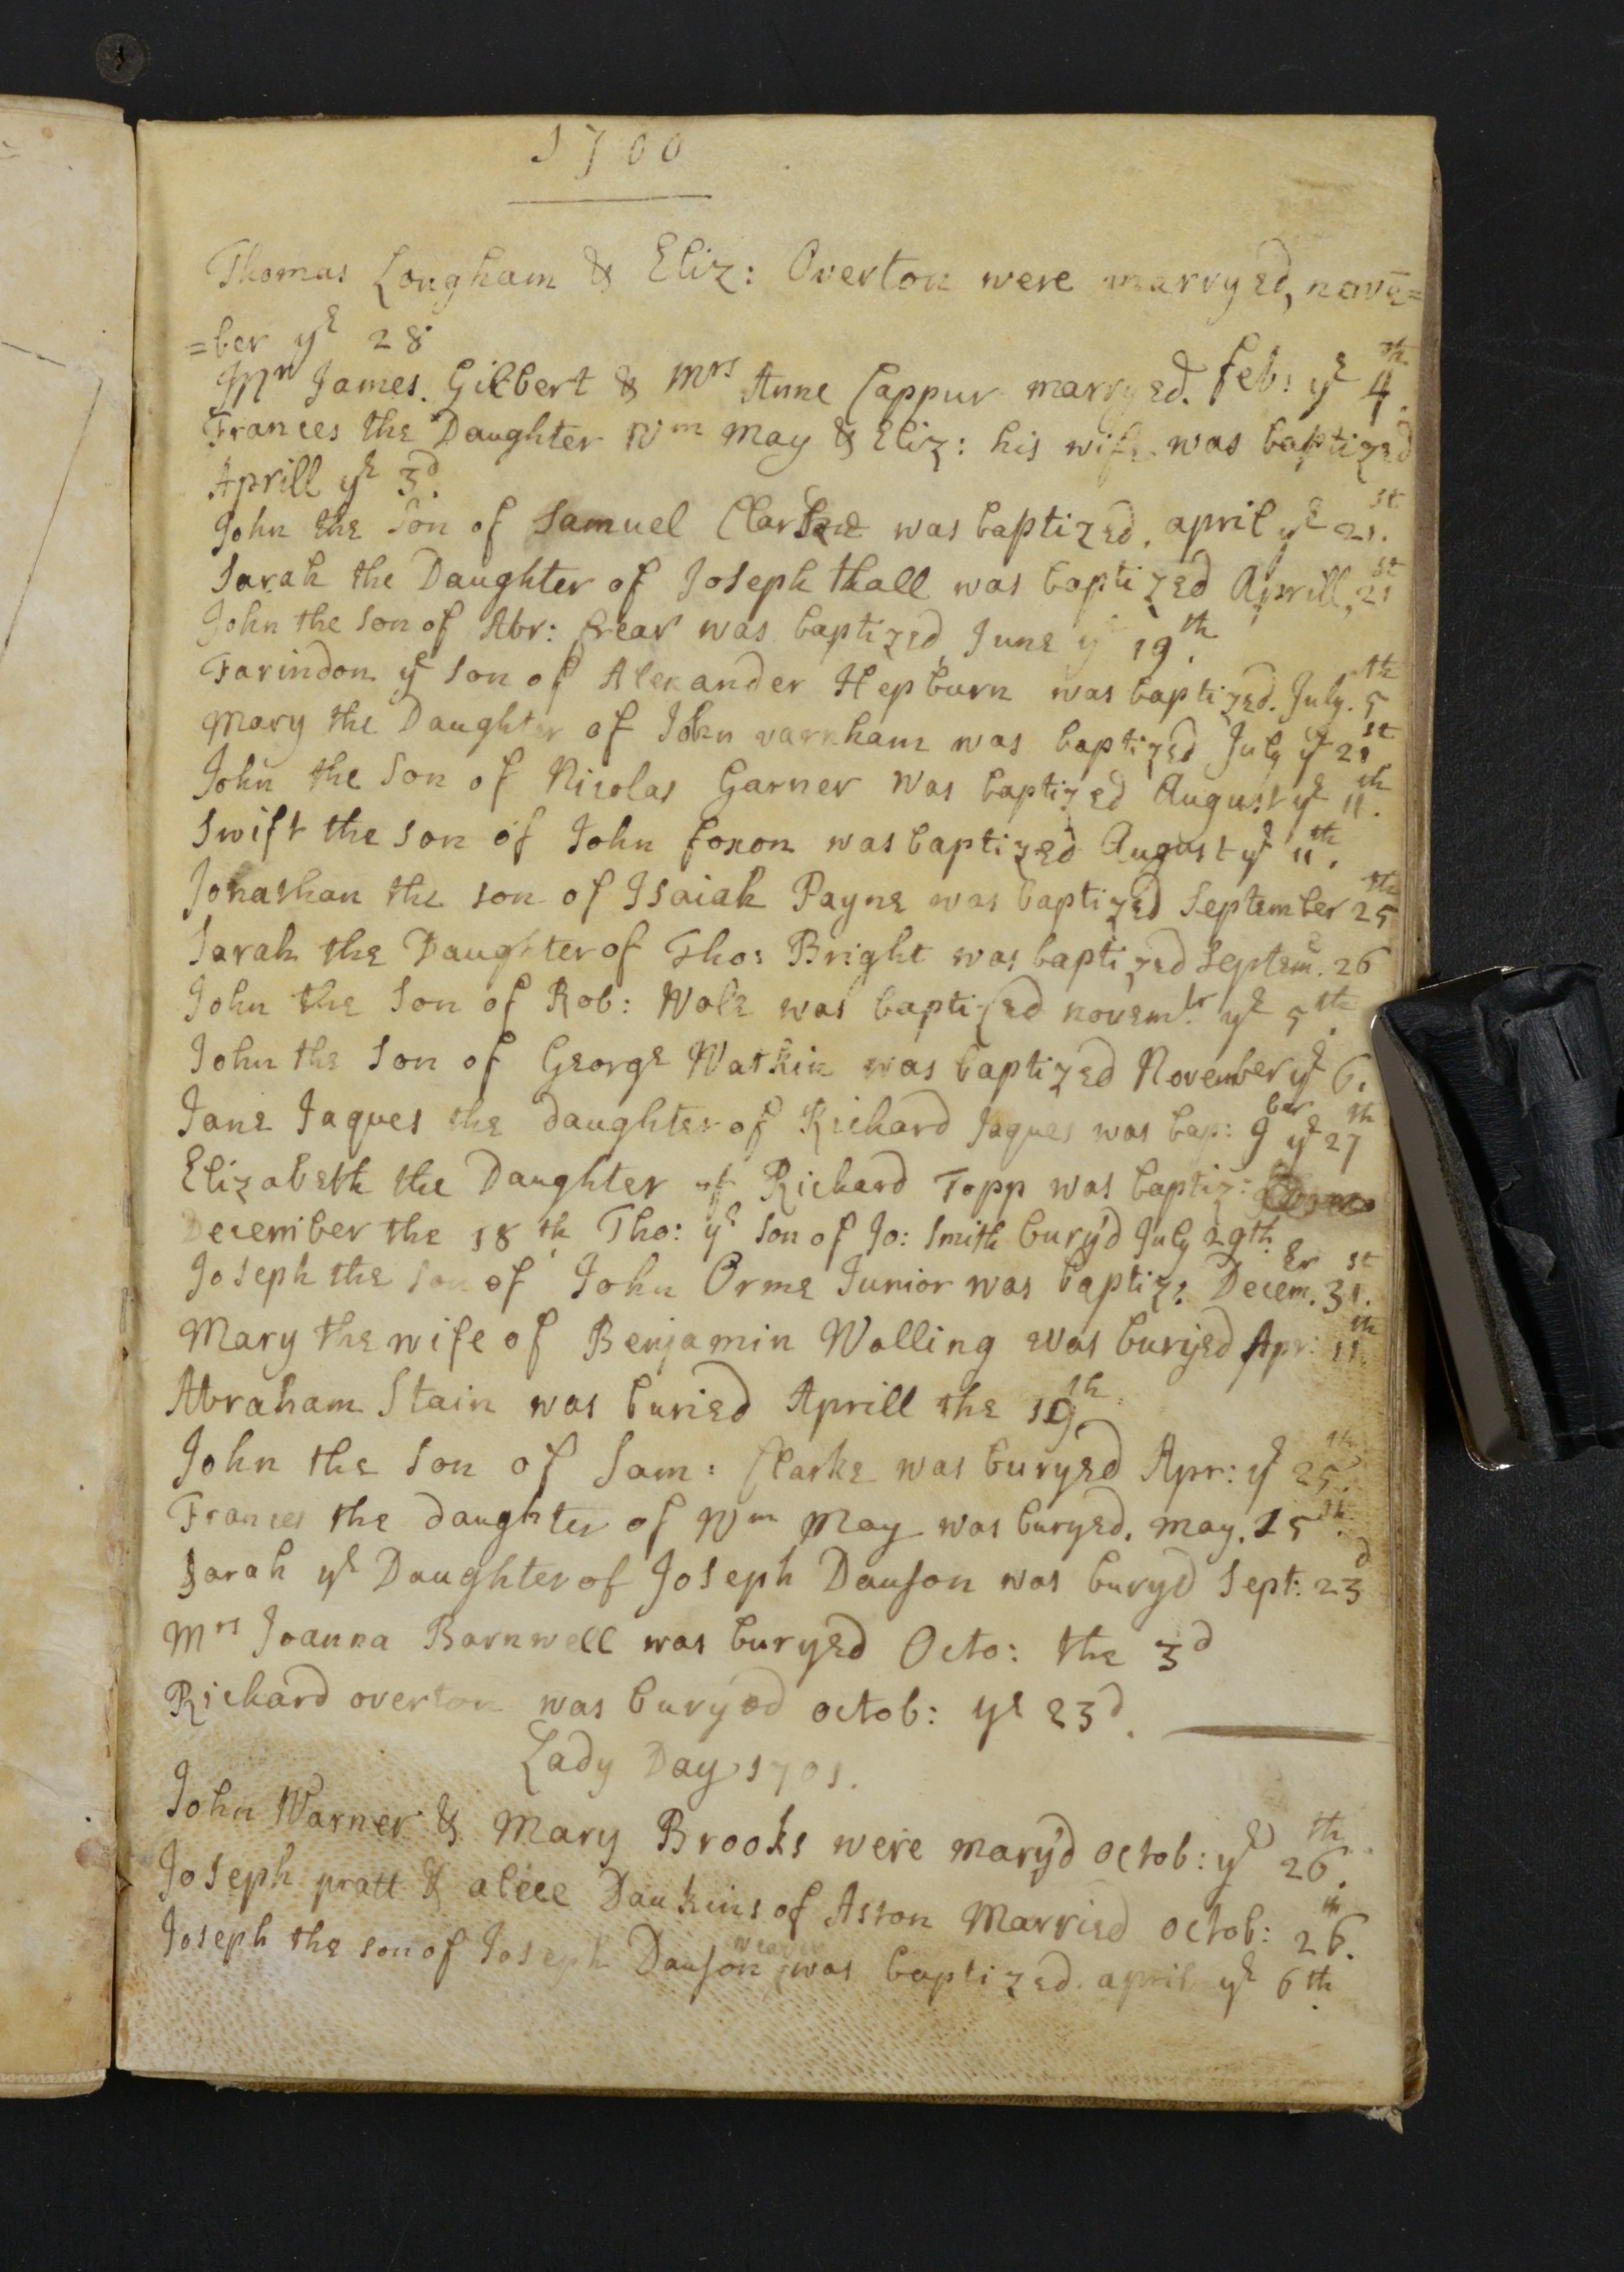 1700
Thomas Longham & Eliz: Overton were marryed, nove=
=ber ye 28
Mr James. Gilbert & Mrs Anne Cappur marryed. Feb: ye 4th.
Frances the Daughter Wm May & Eliz: his wife was baptized
Aprill ye 3d.
John the Son of Samuel Clarke was baptized. april ye 21st.
Sarah the Daughter of Joseph thall was baptized Aprill, 21st
John the Son of Abr: frear was baptized June ye 19th.
Farindon ye Son of Alexander Hepburn was baptized. July. 5th
Mary the Daughter of John varnham was baptized July ye 21st
John the Son of Nicolas Garner was baptized August ye 11th.
Swift the Son of John foxon was baptized August ye 11th.
Jonathan the son of Isaiah Payne was baptized September 25th
Sarah the Daughter of Tho: Bright was baptized Septem. 26
John the Son of Rob: Wole was baptized novembr ye 5th.
John the Son of George Watkin was baptized November ye 6.
Jane Jaques the daughter of Richard Jaques was bap: 9ber ye 27th
Elizabeth the Daughter of Richard Topp was baptiz:
December the 18th. Tho: ye Son of Jo: Smith bury'd July 29th.
Joseph the Son of John Orme Junior was baptiz: Decem.er 31st.
Mary the wife of Benjamin Walling was buryed Apr: 11th.
Abraham Stain was buried Aprill the 19th.
John the Son of Sam: Clarke was buryed Apr: ye 25th.
Frances the daughter of Wm May was buryed. may. 15th.
Sarah ye Daughter of Joseph Dauson was buryd Sept: 23d
Mrs Joanna Barnwell was buryed Octo: the 3d
Richard overton was buryed octob: ye 23d.
Lady Day 1701.
John Warner & Mary Brooks were mary'd octob: ye 26th.
Joseph pratt & alice Daukins of Aston Married octob: 26th.
Joseph the son of Joseph Dauson weaver was baptized. april ye 6th.